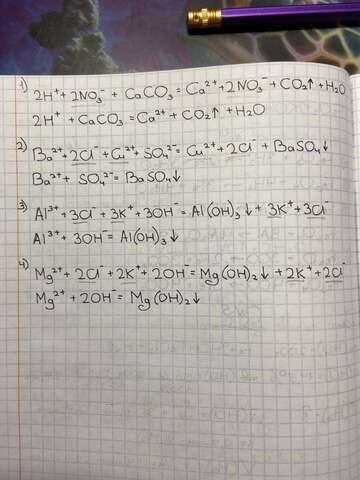 1) 2H⁺+2NO₃⁻ + CaCO₃ = Ca²⁺+2NO₃⁻ + CO₂↑ + H₂O
2H⁺ + CaCO₃ = Ca²⁺ + CO₂↑ + H₂O
2) Ba²⁺+2Cl⁻+Cu²⁺+SO₄²⁻ = Cu²⁺ + 2Cl⁻ + BaSO₄↓
Ba²⁺ + SO₄²⁻ = BaSO₄↓
3) Al³⁺ + 3Cl⁻ + 3K⁺ + 3OH⁻ = Al(OH)₃↓ + 3K⁺ + 3Cl⁻
Al³⁺ + 3OH⁻ = Al(OH)₃↓
4) Mg²⁺ + 2Cl⁻ + 2K⁺ + 2OH⁻ = Mg(OH)₂↓ + 2K⁺ + 2Cl⁻
Mg²⁺ + 2OH⁻ = Mg(OH)₂↓